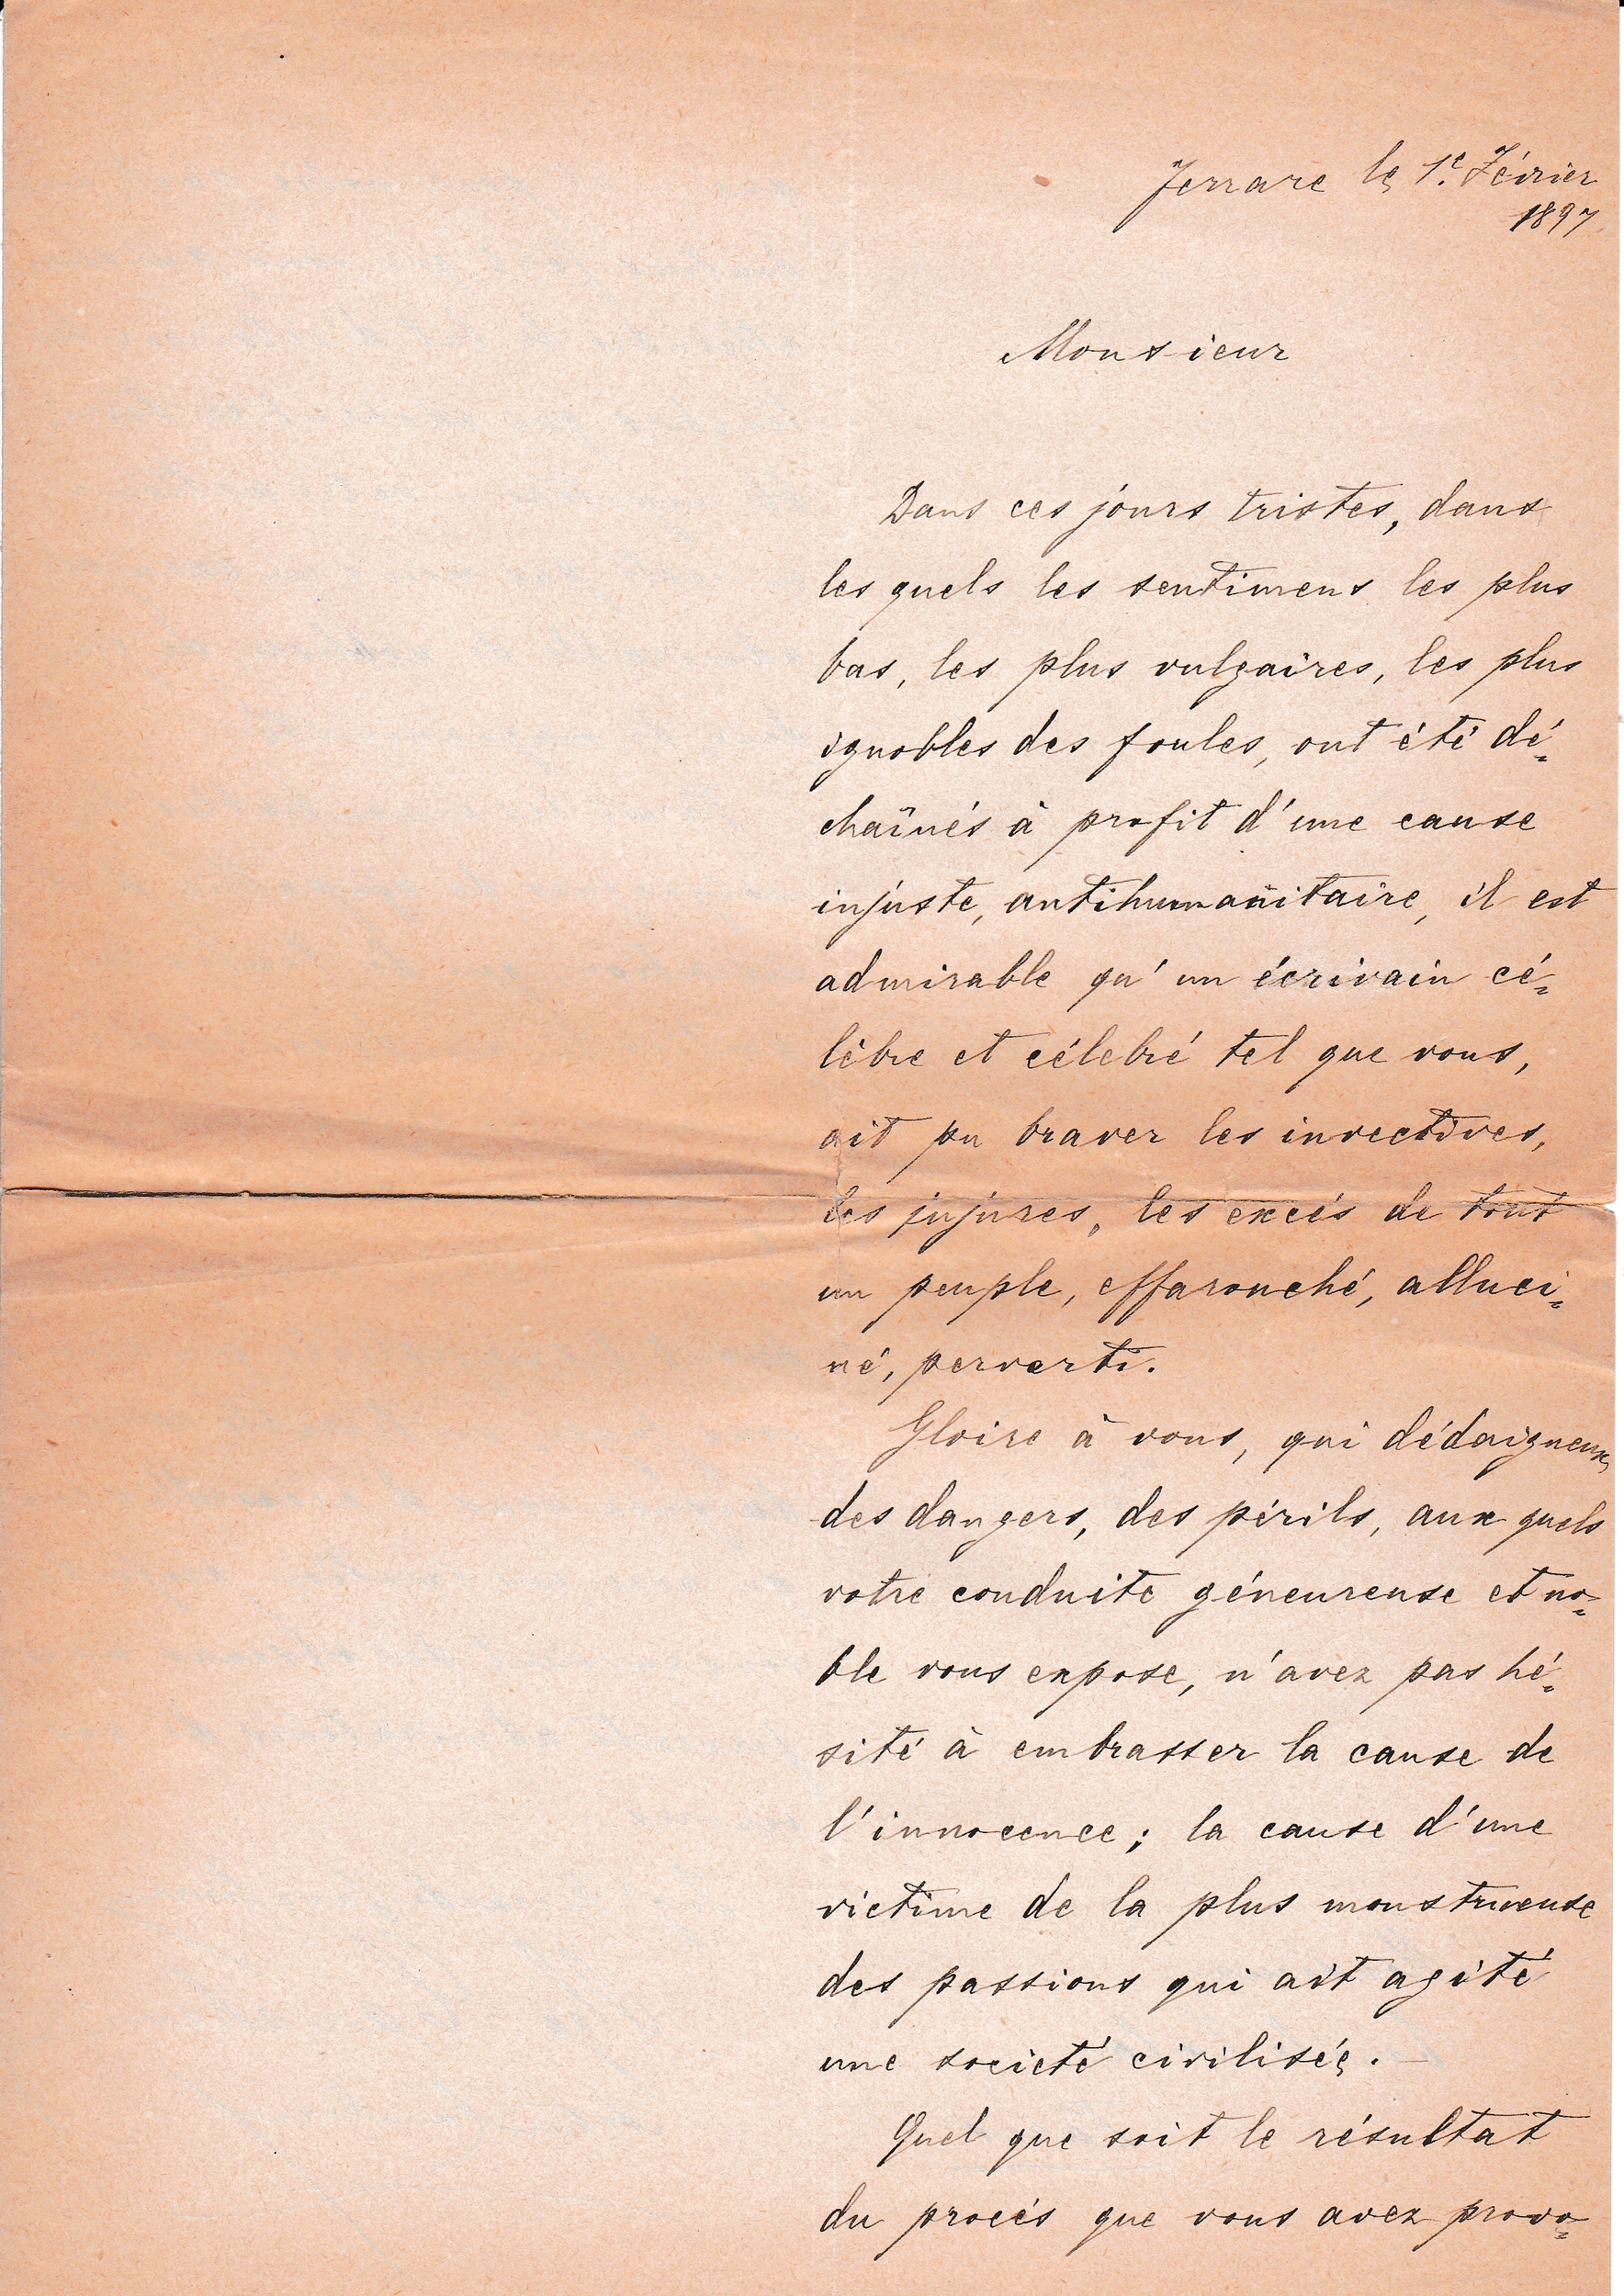 Ferrare le 1.e Février
1897
Monsieur
Dans ces jours tristes, dans
les quels les sentimens les plus
bas, les plus vulgaires, les plus
ignobles des foules, ont été dé=
chaînés à profit d'une cause
injuste, antihumanitaire, il est
admirable qu'un écrivain cé=
lèbre et célebré tel que vous,
ait pu braver les invectives,
les injures, les excés de tout
un peuple, effarouché, alluci=
né, perverti.
Gloire à vous, qui dédaigneux,
des dangers, des périls, aux quels
votre conduite géneureuse et no=
ble vous expose, n'avez pas hé=
sité à embrasser la cause de
l'innocence; la cause d'une
victime de la plus monstrueuse
des passions qui ait agité
une societé civilisée.
Quel que soit le résultat
du procés que vous avez provo=